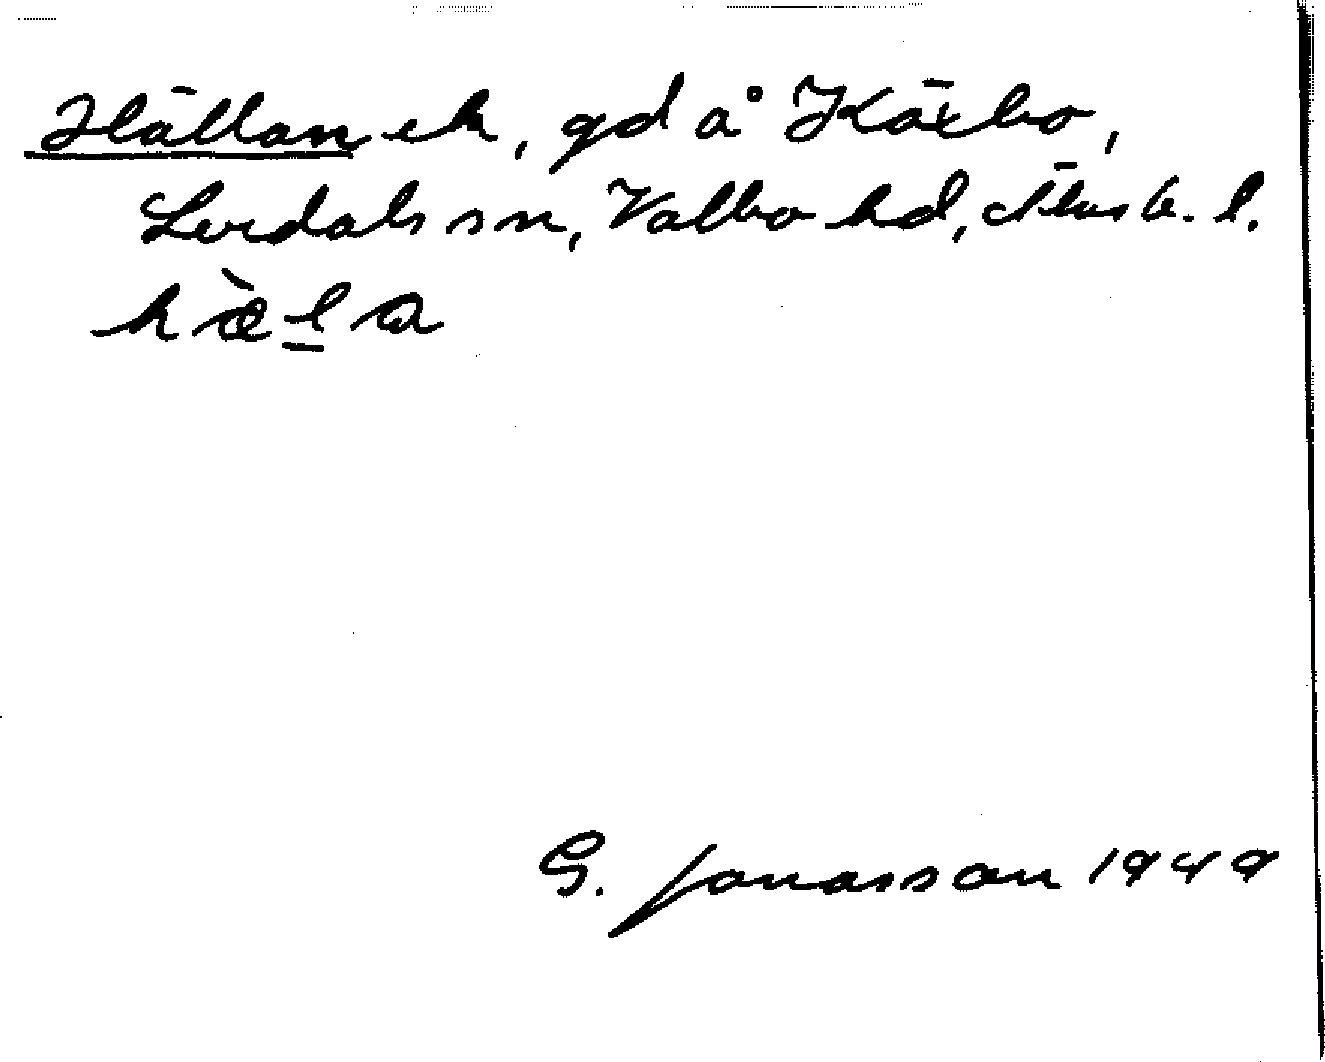 Hällan ek, gd å Käxbo,
Lerdals sn, Valbo hd, Älvsb. l.
hæ̀l̠a
G. Jonasson 1949